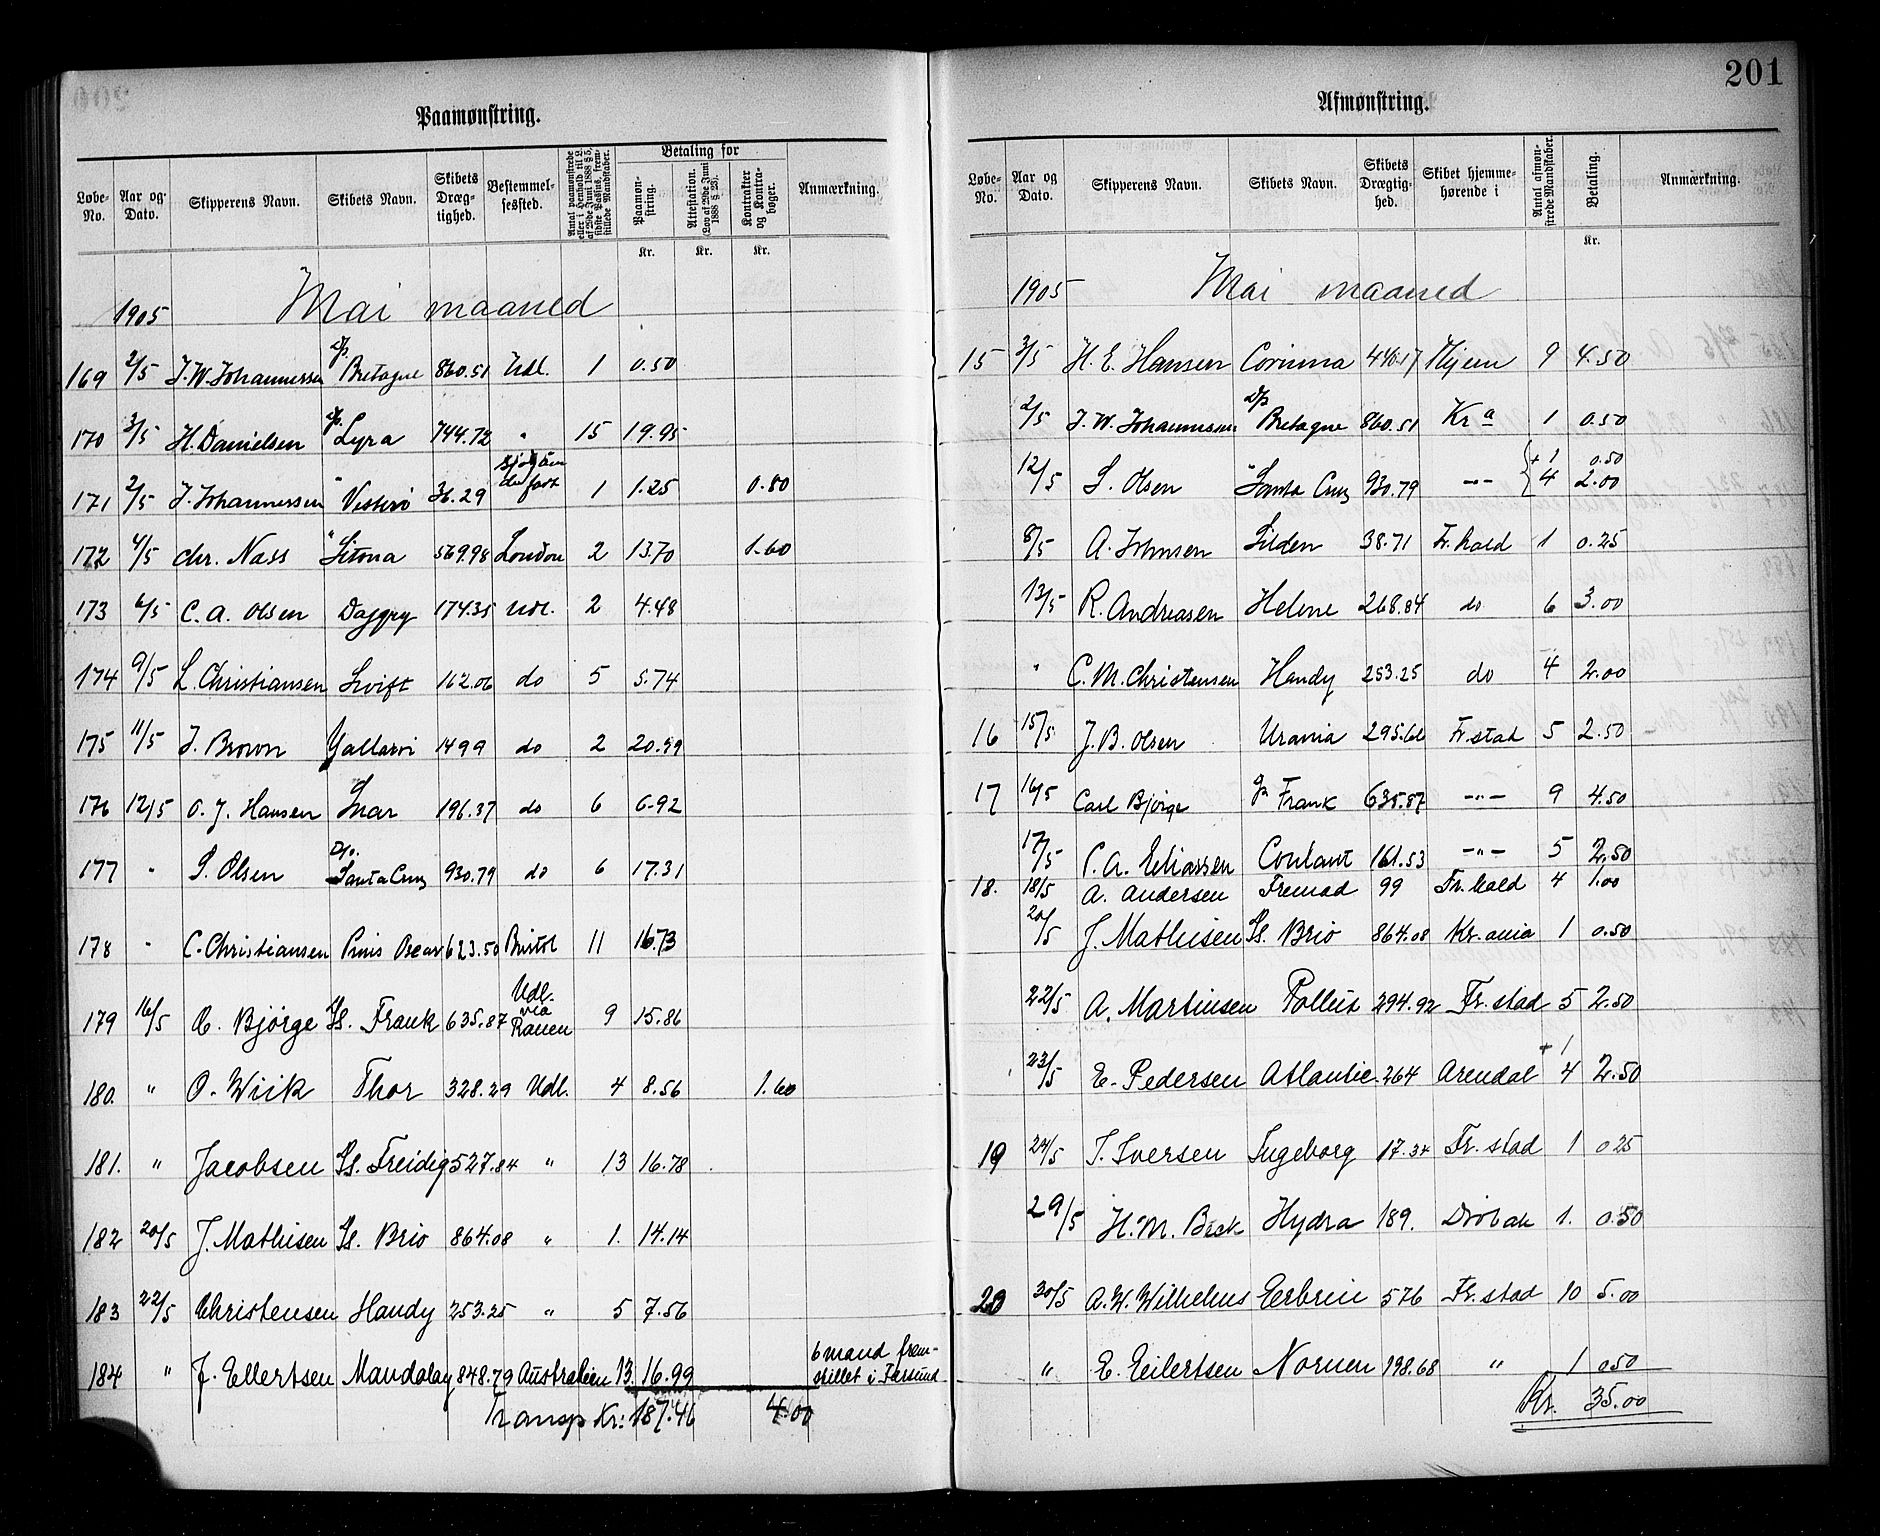 201
Paamønstring.
Løbe-No. Aar og Dato. Skipperens Navn. Skibets Navn. Skibets Dræg-tighed. Bestemmel-sessted. Betaling for Paamøn-string. Attestation. (Lov af 29de Juni 1888 § 25). Kontrakter og Kontra-bøger. Anmærkning.
Kr. Kr. Kr.
1905 Mai maaned
169 2/5 J.W. Johannessen D/s Bretagne 860.51 Udl. 1 0.50
170 3/5 H. Danielsen D/s. Lyra 744.72 " 15 19.95
171 2/5 J. Johannessen " Vesterö 36.29 1 1.25 0.80
172 4/5 Chr. Nass " Sitona 569.98 London 2 13.70 1.60
173 6/5 C. A. Olsen Daggry 174.35 Udl. 2 4.48
174 9/5 L. Christiansen Swift 162.06 do 5 5.74
175 11/5 J. Brown Yallaroi 1499 do 2 20.99
176 12/5 O. J. Hansen Snar 196.37 do 6 6.92
177 " S. Olsen D/s. Santa Cruz 930.79 do 6 17.31
178 " C. Christiansen Prins Oscar 623.50 Bristol 11 16.73
179 16/5 C. Bjørge Ss. Frank 635.87 Udl. via Rauen 9 15.86
180. " O. Wiik Thor 328.29 Udl. 4 8.56 1.60
181. " Jacobsen Ss. Freidig 527.84 " 13 16.78
182 20/5 J. Mathisen Ss. Brio 864.08 " 1. 14.14
183 22/5 Christensen Handy 253.25 " 5 7.56
184 " J. Ellertsen Mandalay 848.79 Australien 13. 16.99 6 mand frem-stillet i Farsund
Transp Kr: 187.46 4.00
Afmønstring.
Løbe-No. Aar og Dato. Skipperens Navn. Skibets Navn. Skibets Drægtig-hed. Skibet hjemme-hørende i Antal afmøn-strede Mandskaber. Betaling. Anmærkning.
Kr.
1905 Mai maaned
15 3/5 H. E. Hansen Corinna 440.17 Hjem 9 4.50
2/5 J. W. Johannessen D/s Bretagne 860.51 Kra 1 0.50
+ 1 0.50
12/5 S. Olsen " Santa Cruz 930.79 -"- 4 2.00
8/5 A. Johnsen Silden 38.71 Fr.hald 1 0.25
13/5 R. Andreasen Helene 268.84 do 6 3.00
" C. M. Christensen Handy 253.25 do 4 2.00
16 15/5 J. B. Olsen Urania 295.60 Fr.stad 5 2.50
17 16/5 Carl Bjørge Frank 635.87 -"- 9 4.50
17/5 C. A. Eliassen 161.53 -"- 5 2.50
18. 18/5 A. Andersen Fremad 99 Fr.hald 4 1.00
20/5 J. Mathisen Ss. Brio 864.08 Kr.ania 1 0.50
22/5 A. Martinsen Pollux 294.92 Fr.stad 5 2.50
+ 1
23/5 E. Pedersen Atlantic. 264 Arendal 4 2.50
19 24/5 J. Iversen Ingeborg 17.34 Fr.stad 1 0 25
29/5 H. M. Beck Hydra 189. Dröbak 1. 0.50
20 30/5 A. W. Wilhelms 576 Fr.stad 10 5.00
" E. Eilertsen Nornen 198.68 " 1 0 50
Kr. 35.00